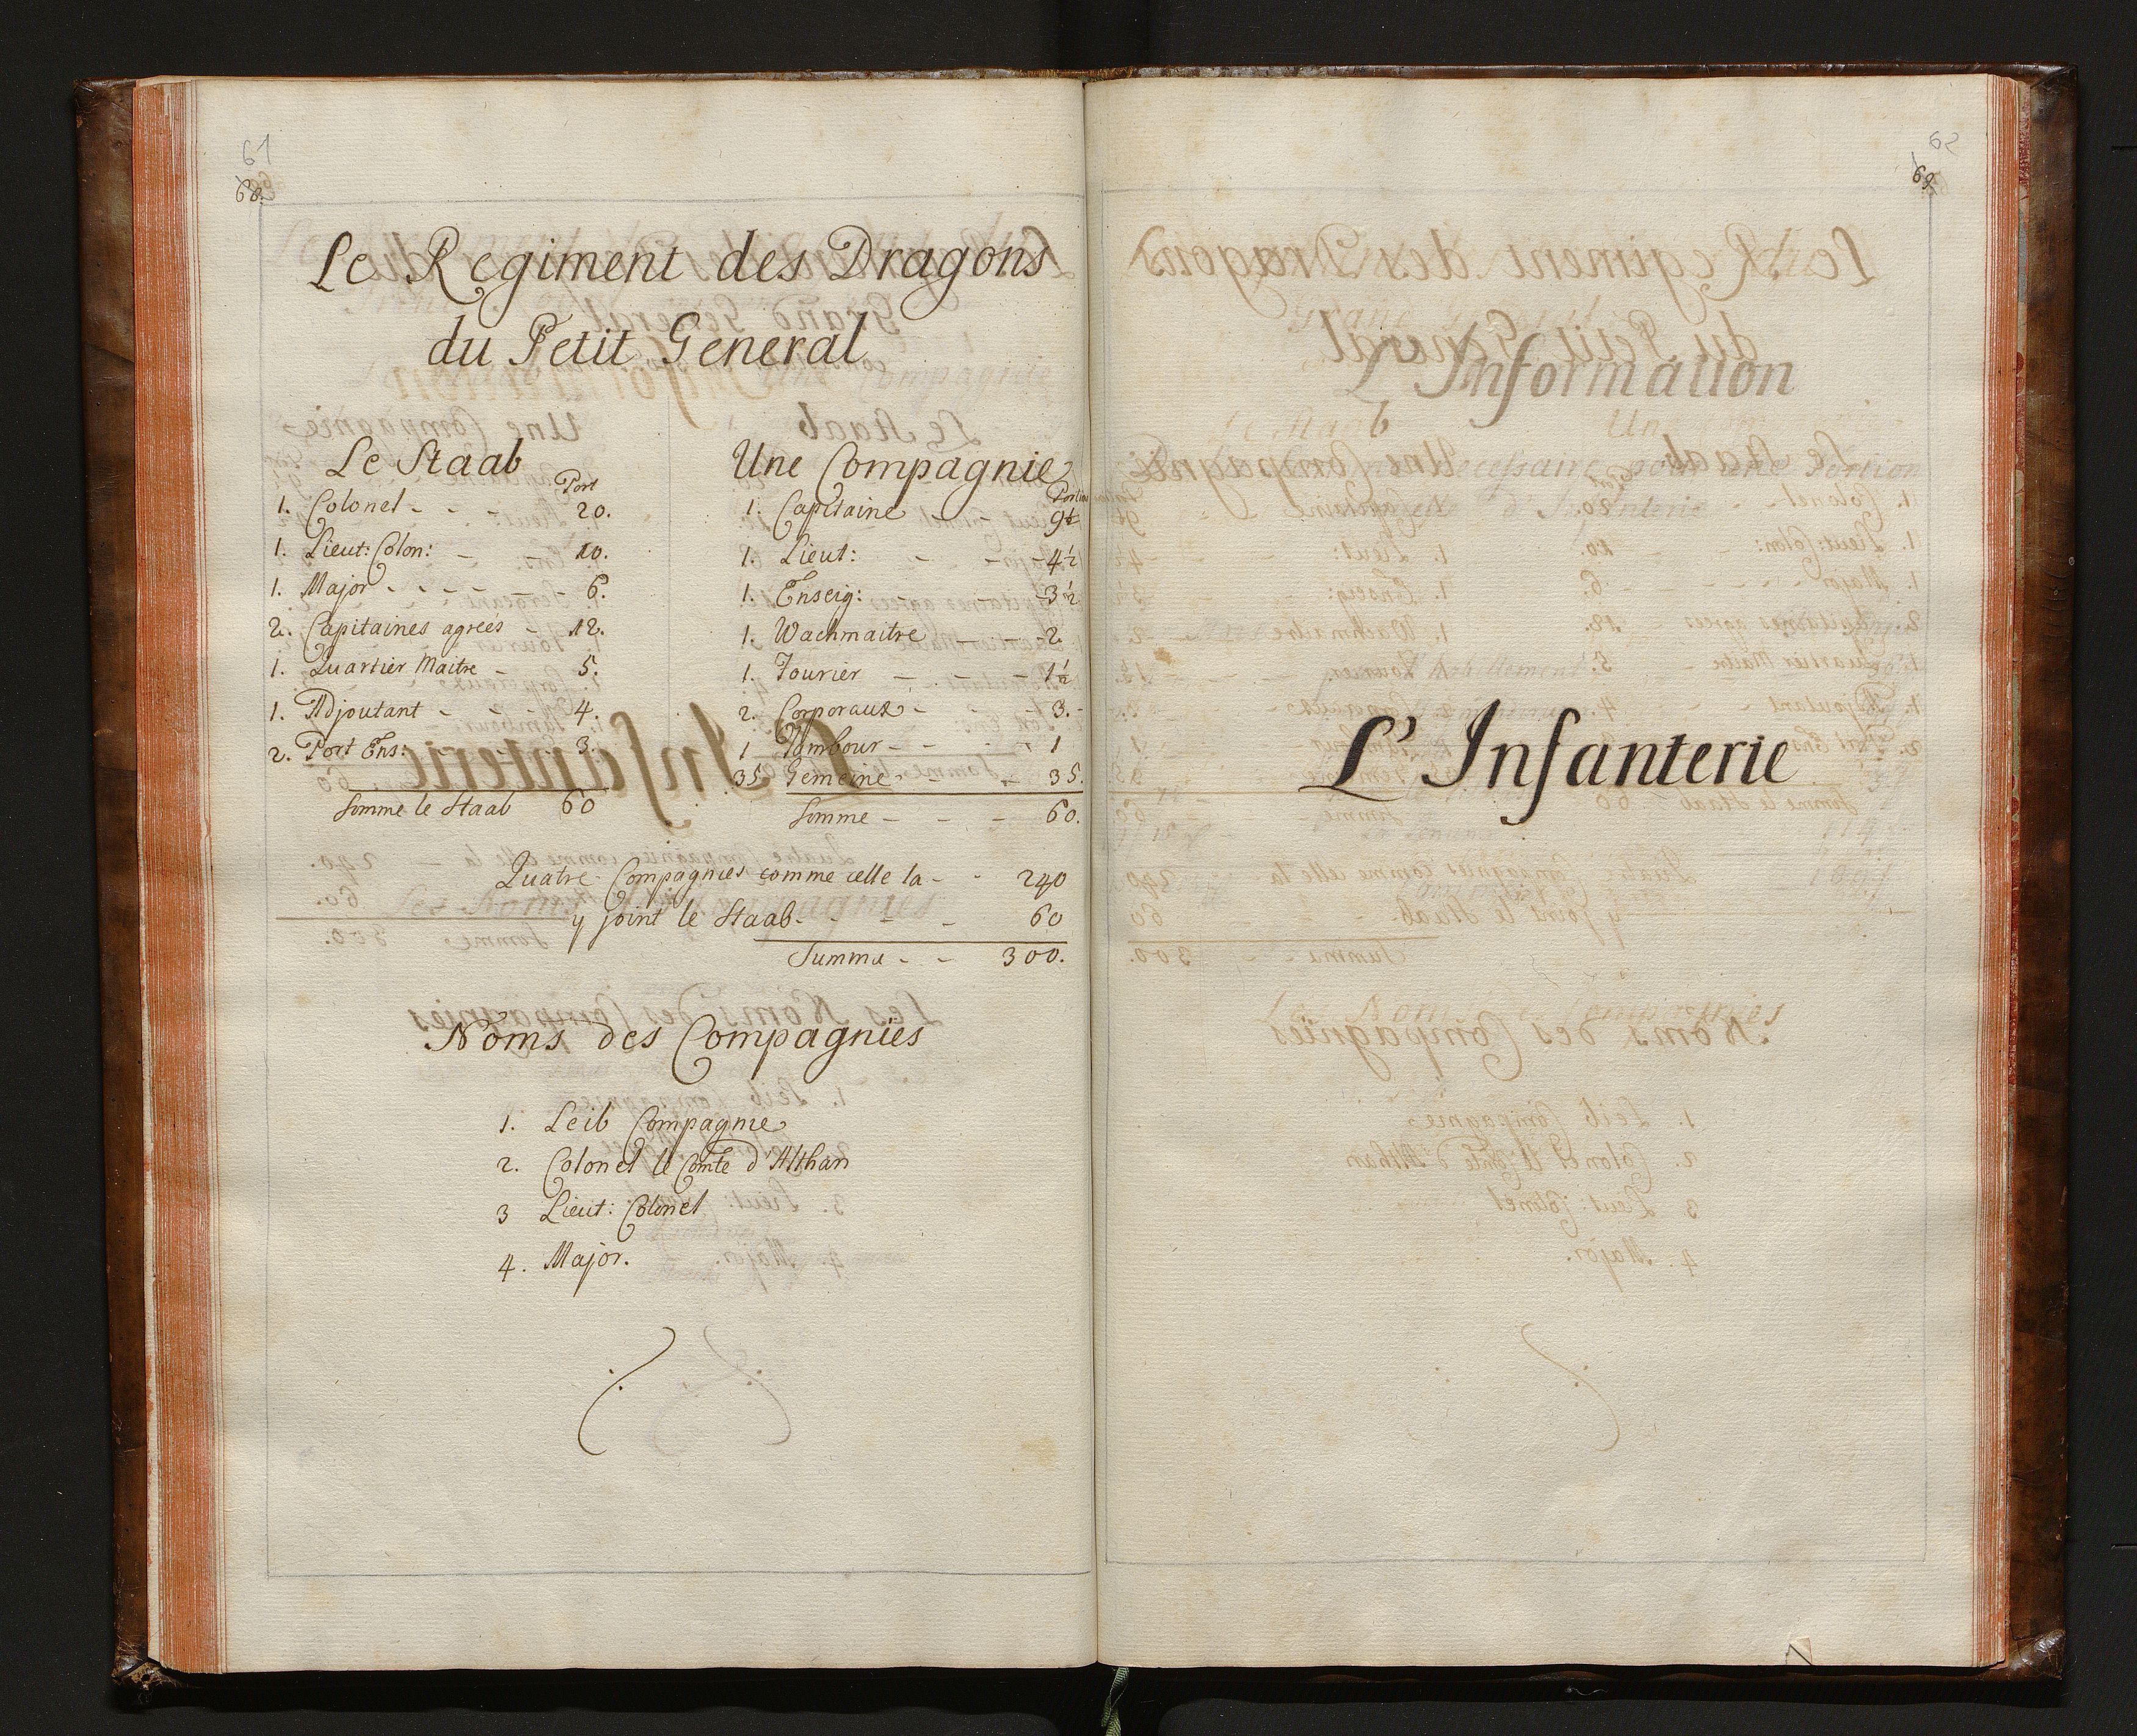 61
68.
Le Regiment des Dragons
du Petit General
Le Staab
Port
1. Colonel - - - 20.
1. Lieut: Colon: - - 10.
1. Major - - - - - - 6.
2. Capitaines agrées - 12.
1. Quartier Maitre - 5.
1. Adjoutant - - - 4.
2. Port Ens: - - 3.
Somme le Staab 60
Une Compagnie
Portion
1. Capitaine - - 9½
1. Lieut: - - - 4½
1. Enseig: - - - 3½
1. Wachmaitre - - - 2.
1. Fourier - - - - 1½
2. Corporaux - - - 3.-
1 Tambour - - - - 1
35 Gemeine - - - 35.
Somme - - - 60.
Quatre Compagnies comme celle la - - 240
y joint le Staab - - - - 60
Summa - - 300.
Noms des Compagnies
1. Leib Compagnie
2. Colonel le Comte d'Althan
3 Lieut: Colonel
4. Major.
62
69.
L'Infanterie